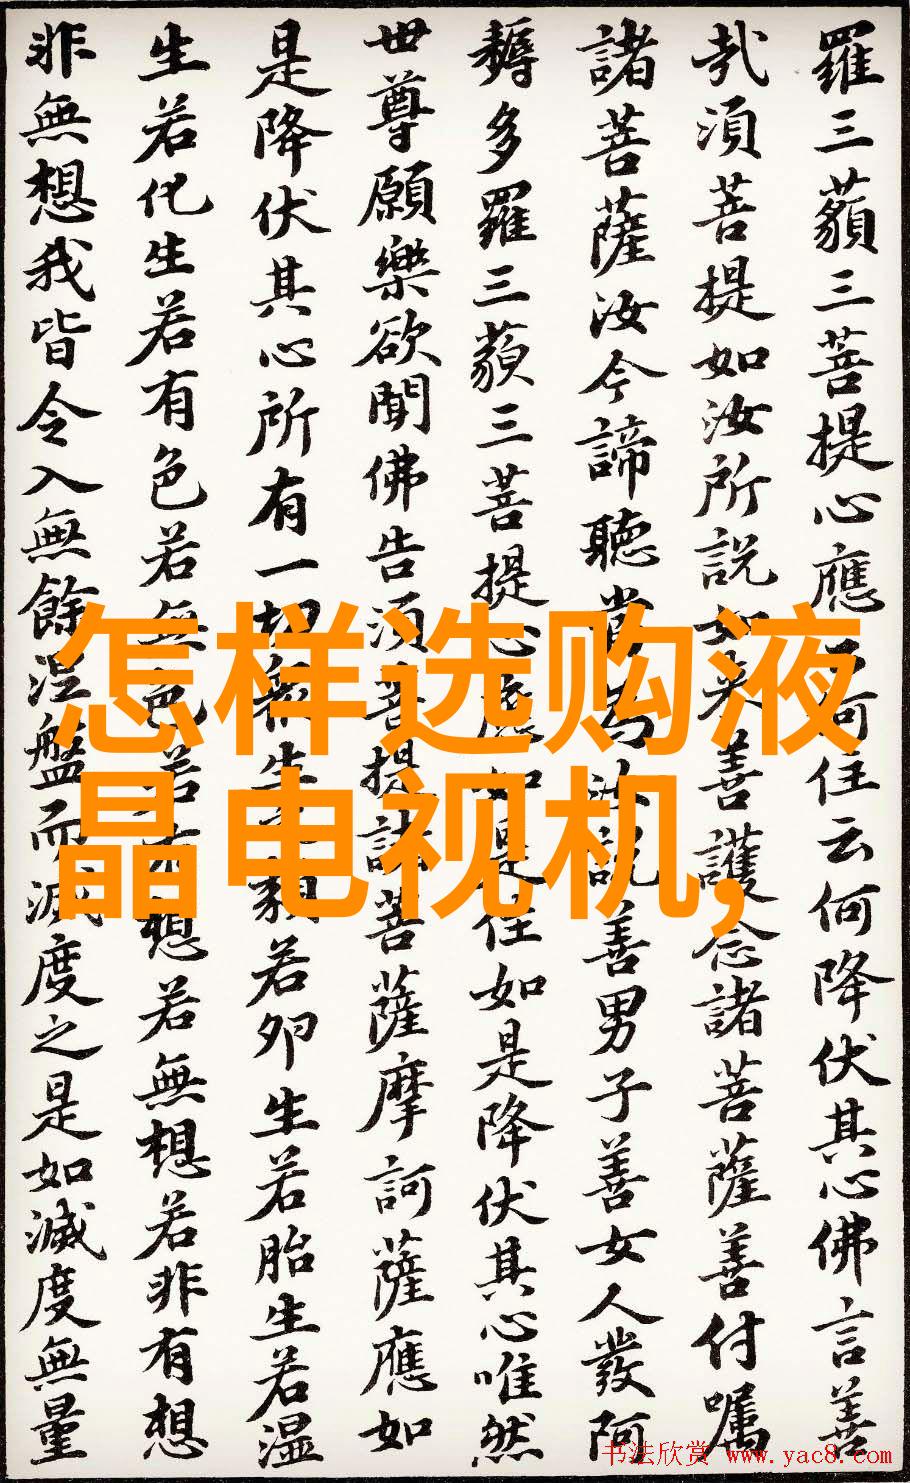 羅三藐三菩提心應云何住云何降伏其心佛言善
哉須菩提如汝所說如來善護念諸菩薩善付囑
諸菩薩汝今諦聽當為汝說善男子善女人發阿
耨多羅三藐三菩提心應如是住如是降伏其心唯然
世尊願樂欲聞佛告須菩提諸菩薩摩訶薩應如
是降伏其心所有一切眾生之類若卵生若胎生若濕
生若化生若有色若無色若有想若無想若非有想
非無想我皆令入無餘涅盤而滅度之是如滅度無量
怎样选购液
晶电视机,
书法欣赏 www.yac8.com